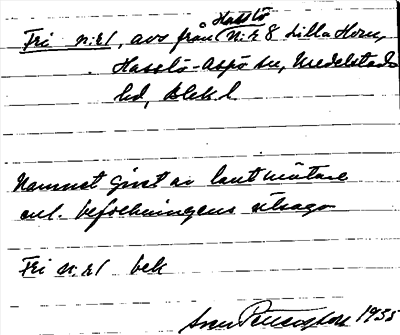 Hasslö
Fri n:r 1, avs från n:r 8 Lilla Horn,
Hasslö-Aspö sn, Medelstads
hd, Blek. l.
Namnet givet av lantmätare
enl. befolkningens utsago
Fri n:r 1 bek
1935